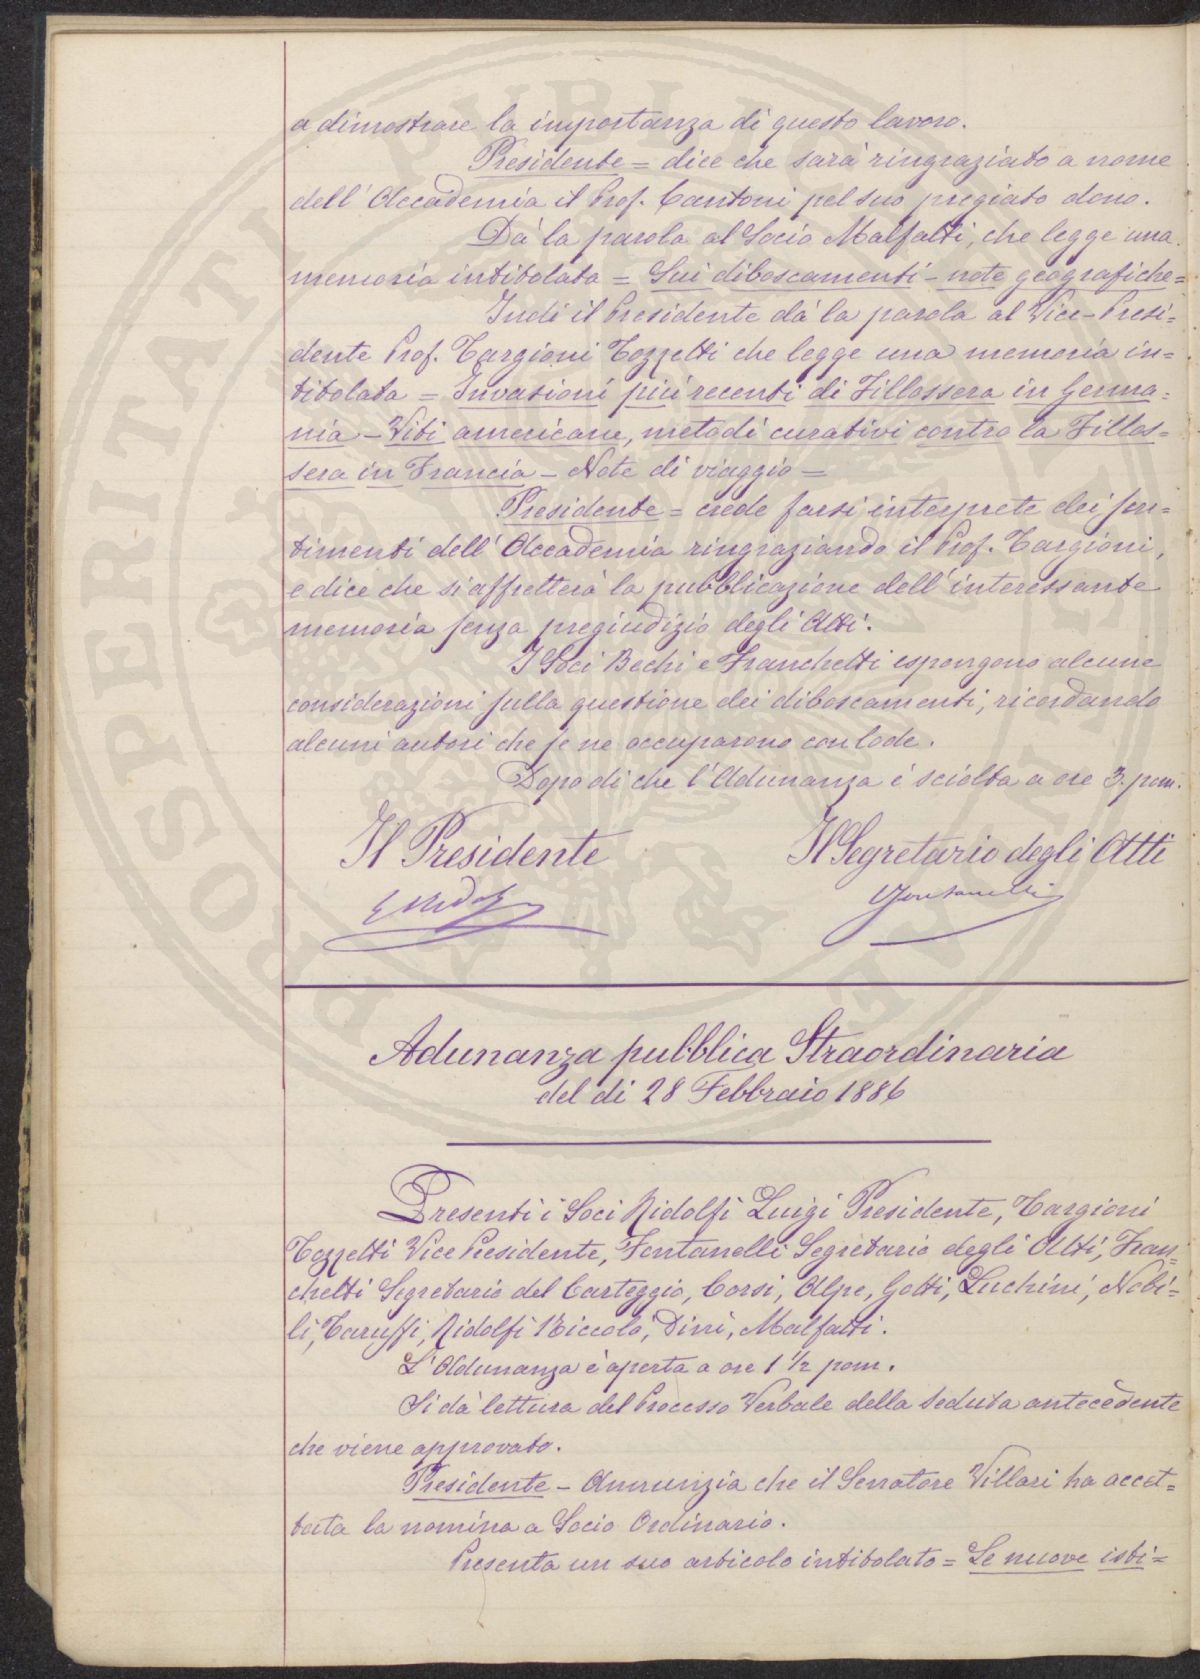 a dimostrare la importanza di questo lavoro.
Presidente = dice che sarà ringraziato a nome
dell'Accademia il Prof. Cantoni pel suo pregiato dono.
Dà la parola al Socio Malfatti, che legge una
memoria intitolata = Sui diboscamenti - note geografiche =
Indi il Presidente dà la parola al Vice-Presi=
dente Prof. Targioni Tozzetti che legge una memoria in=
titolata = Invasioni più recenti di Fillossera in Germa=
nia - Viti americane, metodi curativi contro la Fillos=
sera in Francia - Note di viaggio =
Presidente = crede farsi interprete dei sen=
timenti dell'Accademia ringraziando il Prof. Targioni,
e dice che si affretterà la pubblicazione dell'interessante
memoria senza pregiudizio degli Atti.
I Soci Bechi e Franchetti espongono alcune
considerazioni sulla questione dei diboscamenti, ricordando
alcuni autori che se ne occuparono con lode.
Dopo di che l'Adunanza è sciolta a ore 3. pom.
Il Presidente Il Segretario degli Atti
Fontanelli
Adunanza pubblica Straordinaria
del dì 28 Febbraio 1886
Presenti i Soci Ridolfi Luigi Presidente, Targioni
Tozzetti Vice Presidente, Fontanelli Segretario degli Atti, Fran=
chetti Segretario del Carteggio, Corsi, Alpe, Gotti, Luchini, Nobi=
li, Caruffi, Ridolfi Niccolò, Dini, Malfatti.
L'Adunanza è aperta a ore 1 1/2 pom.
Si dà lettura del Processo Verbale della seduta antecedente
che viene approvato.
Presidente - Annunzia che il Senatore Villari ha accet=
tata la nomina a Socio Ordinario.
Presenta un suo articolo intitolato = Le nuove isti=
PROSPERITATI PUBLICAE